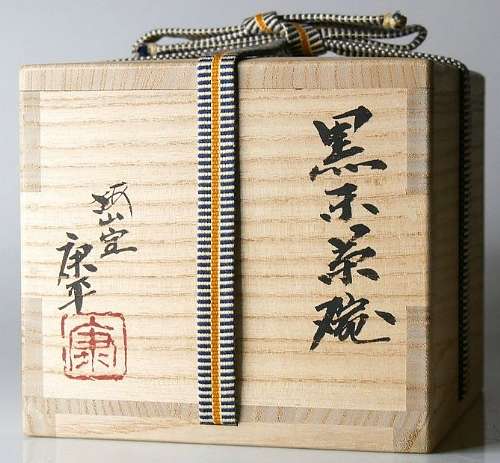 黒楽茶碗
山窯
康平
康